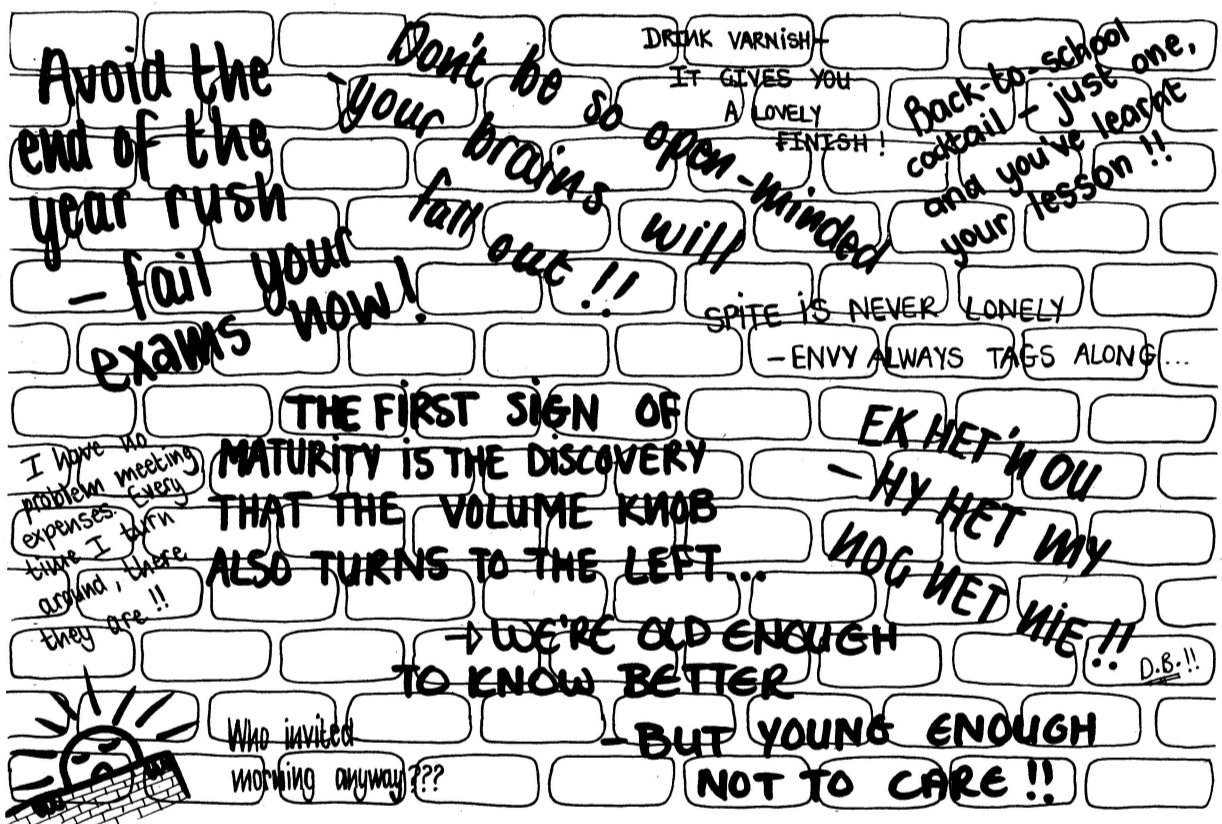 Avoid the
end of the
year rush
- fail your
exams now!
Don't be so open-minded
your brains will
fall out!!
DRINK VARNISH-
IT GIVES YOU
A LOVELY
FINISH!
Back-to-school
cocktail - just one,
and you've learnt
your lesson!!
SPITE iS NEVER LONELY
- ENVY ALWAYS TAGS ALONG...
THE FiRST SiGN OF
MATURiTY iS THE DiSCOVERY
THAT THE VOLUME KNOB
ALSO TURNS TO THE LEFT...
I have no
problem meeting
expenses. Every
time I turn
around, there
they are!!
EK HET 'N OU
- HY HET MY
NOG NET NiE!!
D.B.!!
WE'RE OLD ENOUGH
TO KNOW BETTER
- BUT YOUNG ENOUGH
NOT TO CARE!!
Who invited
morning anyway???